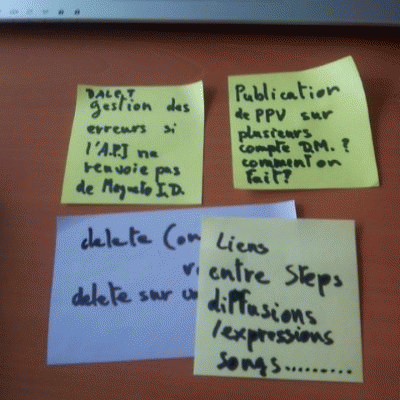 DALET
Gestion des
erreurs si
l'API ne
renvoie pas
de Magneto I.D.
Publication
de PPV sur
plusieurs
compte D.M. ?
comment on
fait?
delete Con
delete sur un
Liens
entre Steps
diffusions
/expressions
songs.........